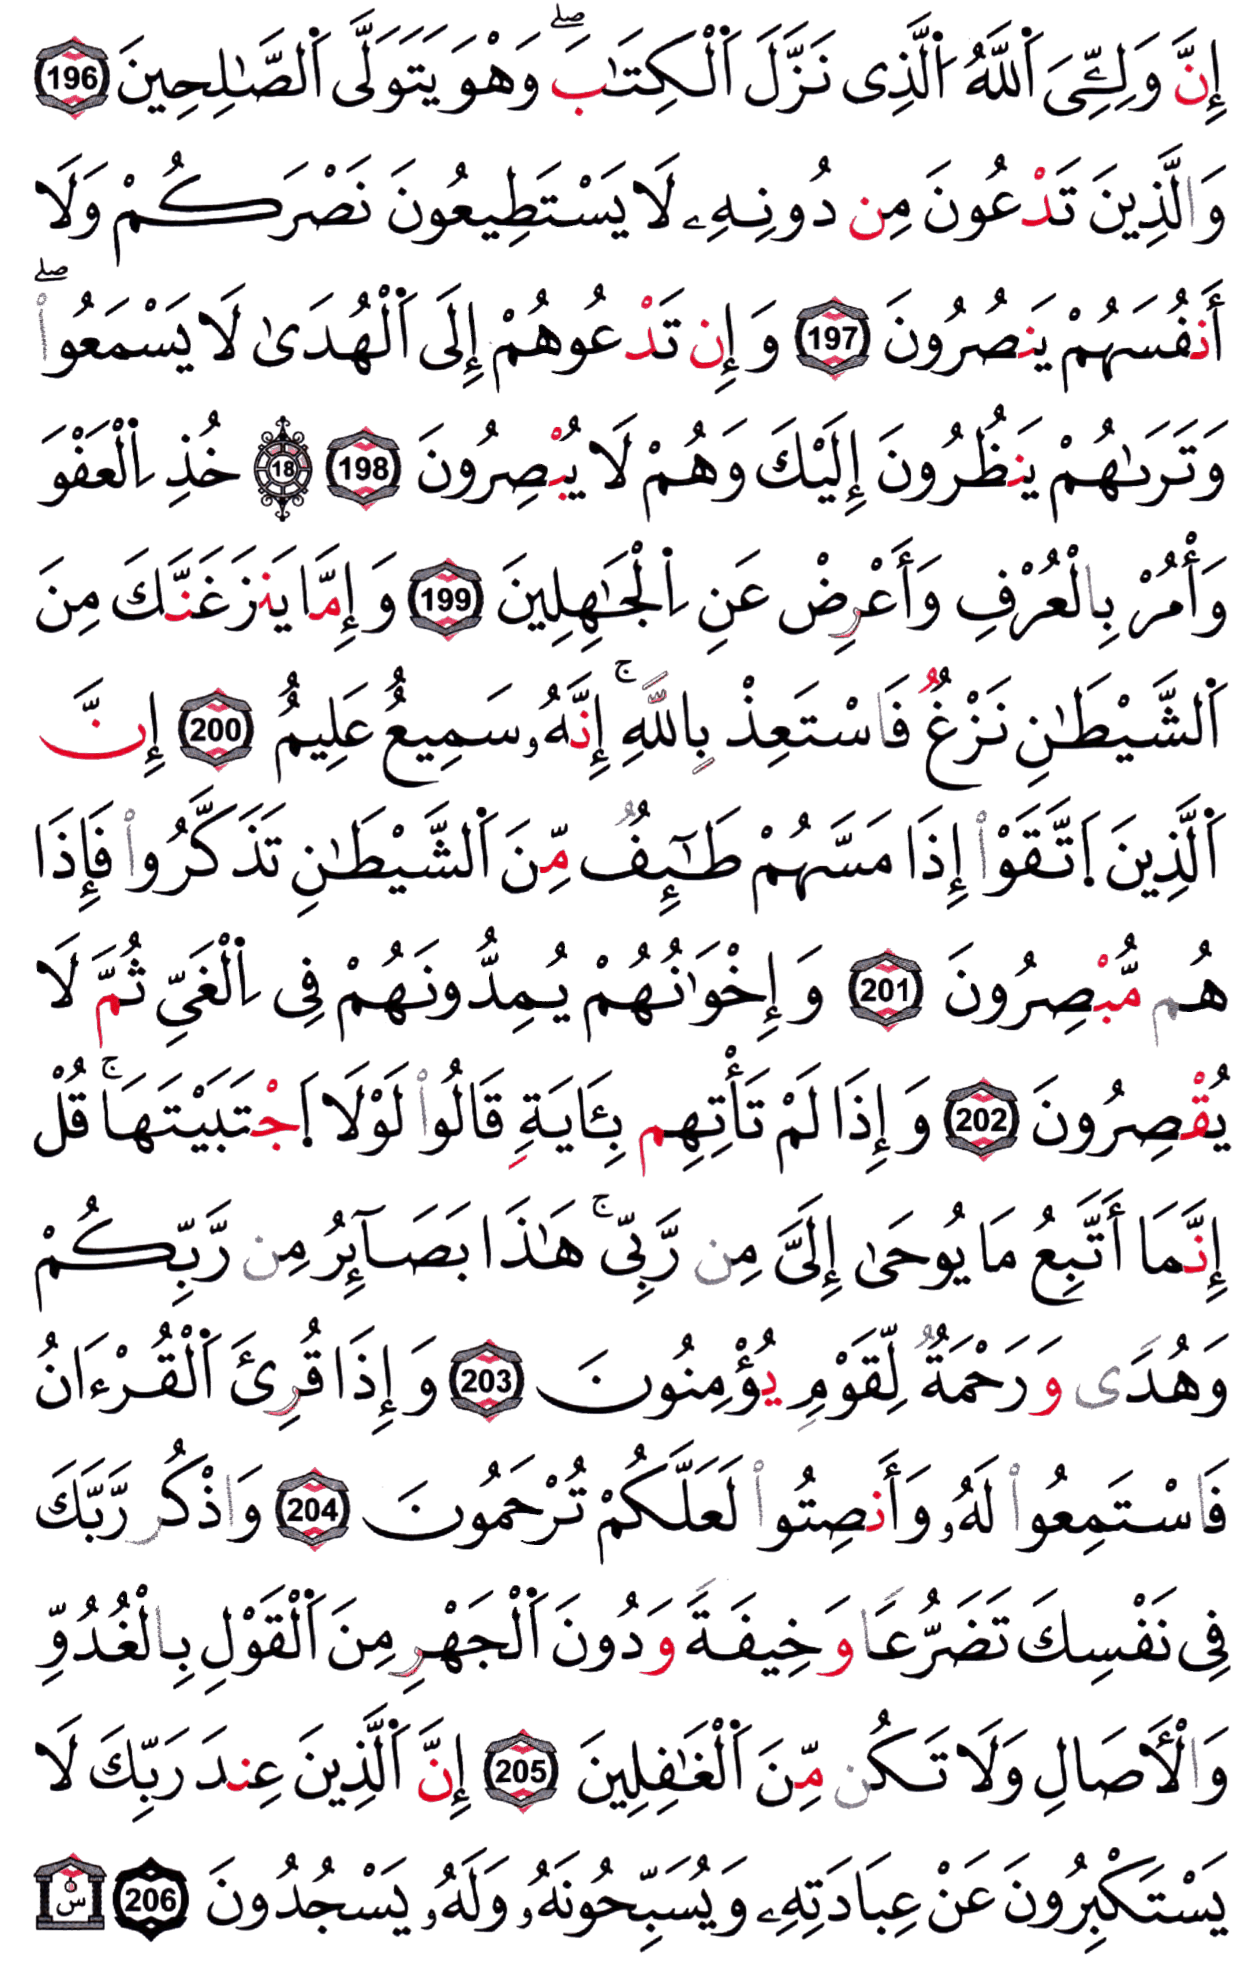 إِنَّ وَلِـِّۧىَ ٱللَّهُ ٱلَّذِى نَزَّلَ ٱلْكِتَـٰبَ ۖ وَهْوَ يَتَوَلَّى ٱلصَّـٰلِحِينَ 196
وَٱلَّذِينَ تَدْعُونَ مِن دُونِهِۦ لَا يَسْتَطِيعُونَ نَصْرَكُمْ وَلَا
أَنفُسَهُمْ يَنصُرُونَ 197 وَإِن تَدْعُوهُمْ إِلَى ٱلْهُدَىٰ لَا يَسْمَعُوا۟ ۖ
وَتَرَىٰهُمْ يَنظُرُونَ إِلَيْكَ وَهُمْ لَا يُبْصِرُونَ 198 18 خُذِ ٱلْعَفْوَ
وَأْمُرْ بِٱلْعُرْفِ وَأَعْرِضْ عَنِ ٱلْجَـٰهِلِينَ 199 وَإِمَّا يَنزَغَنَّكَ مِنَ
ٱلشَّيْطَـٰنِ نَزْغٌ فَٱسْتَعِذْ بِٱللَّهِ ۚ إِنَّهُۥ سَمِيعٌ عَلِيمٌ 200 إِنَّ
ٱلَّذِينَ ٱتَّقَوْا۟ إِذَا مَسَّهُمْ طَـٰٓئِفٌ مِّنَ ٱلشَّيْطَـٰنِ تَذَكَّرُوا۟ فَإِذَا
هُم مُّبْصِرُونَ 201 وَإِخْوَٰنُهُمْ يُمِدُّونَهُمْ فِى ٱلْغَىِّ ثُمَّ لَا
يُقْصِرُونَ 202 وَإِذَا لَمْ تَأْتِهِم بِـَٔايَةٍ قَالُوا۟ لَوْلَا ٱجْتَبَيْتَهَا ۚ قُلْ
إِنَّمَا أَتَّبِعُ مَا يُوحَىٰ إِلَىَّ مِن رَّبِّى ۚ هَـٰذَا بَصَآئِرُ مِن رَّبِّكُمْ
وَهُدًى وَرَحْمَةٌ لِّقَوْمٍ يُؤْمِنُونَ 203 وَإِذَا قُرِئَ ٱلْقُرْءَانُ
فَٱسْتَمِعُوا۟ لَهُۥ وَأَنصِتُوا۟ لَعَلَّكُمْ تُرْحَمُونَ 204 وَٱذْكُر رَّبَّكَ
فِى نَفْسِكَ تَضَرُّعًا وَخِيفَةً وَدُونَ ٱلْجَهْرِ مِنَ ٱلْقَوْلِ بِٱلْغُدُوِّ
وَٱلْأَصَالِ وَلَا تَكُن مِّنَ ٱلْغَـٰفِلِينَ 205 إِنَّ ٱلَّذِينَ عِندَ رَبِّكَ لَا
يَسْتَكْبِرُونَ عَنْ عِبَادَتِهِۦ وَيُسَبِّحُونَهُۥ وَلَهُۥ يَسْجُدُونَ 206 س